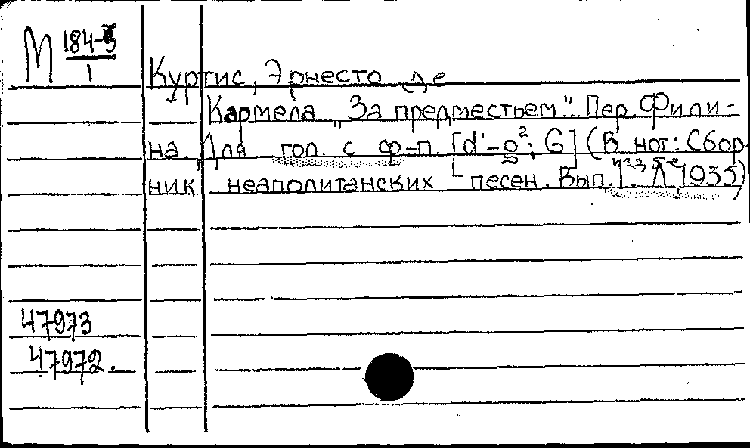 М 184-5
1
Куртис, Эрнесто де
Кармела „За предместьем". Пер. Фили-
на. Для гол. с ф-п. [d'-g²; G] (В нот: Сбор-
ник неаполитанских песен. Вып. 1. Л. 1935)
47973
47972.